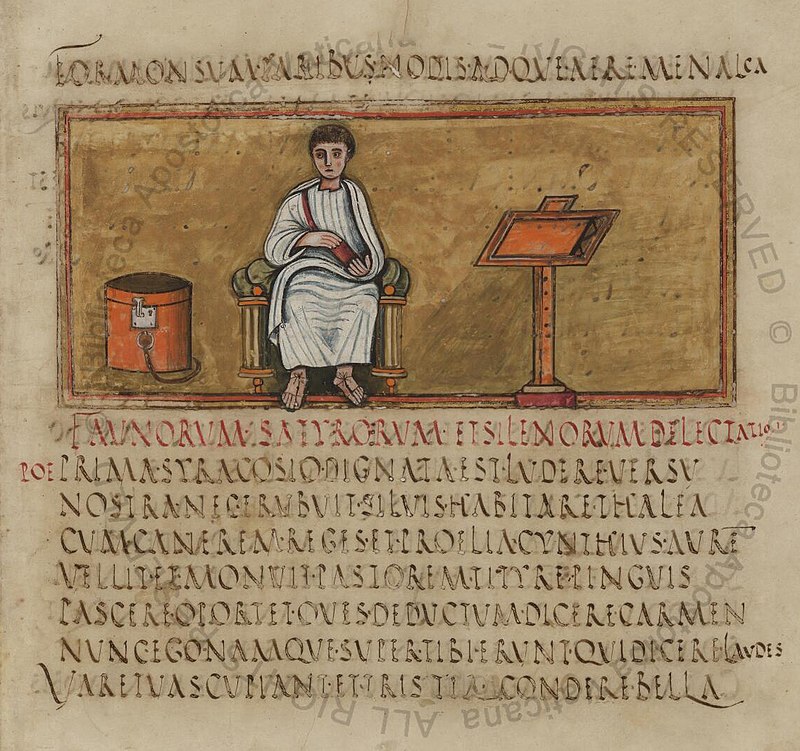 FORMONSVM·PARIBVS·NODIS·ADQVE·AERE·MENALCA
FAVNORVM·SATYRORVM·ET·SILENORVM·DELECTATIO
POE PRIMA·SYRACOSIO·DIGNATA·EST·LVDERE·VERSV
NOSTRA·NEC·ERVBVIT·SILVIS·HABITARE·THALEA
CVM·CANEREM·REGES·ET·PROELIA·CYNTHIVS·AVRE
VELLIT·PASTOREM·TITYRE·PINGVIS
PASCERE·OPORTET·OVES·DEDVCTVM·DICERE·CARMEN
NVNC·EGO·NAMQVE·SVPER·TIBI·ERVNT·QVI·DICERE·LAVDES
VARE·TVAS·CVPIANT·ET·TRISTIA·CONDERE·BELLA
© Biblioteca Apostolica Vaticana ALL RIGHTS RESERVED